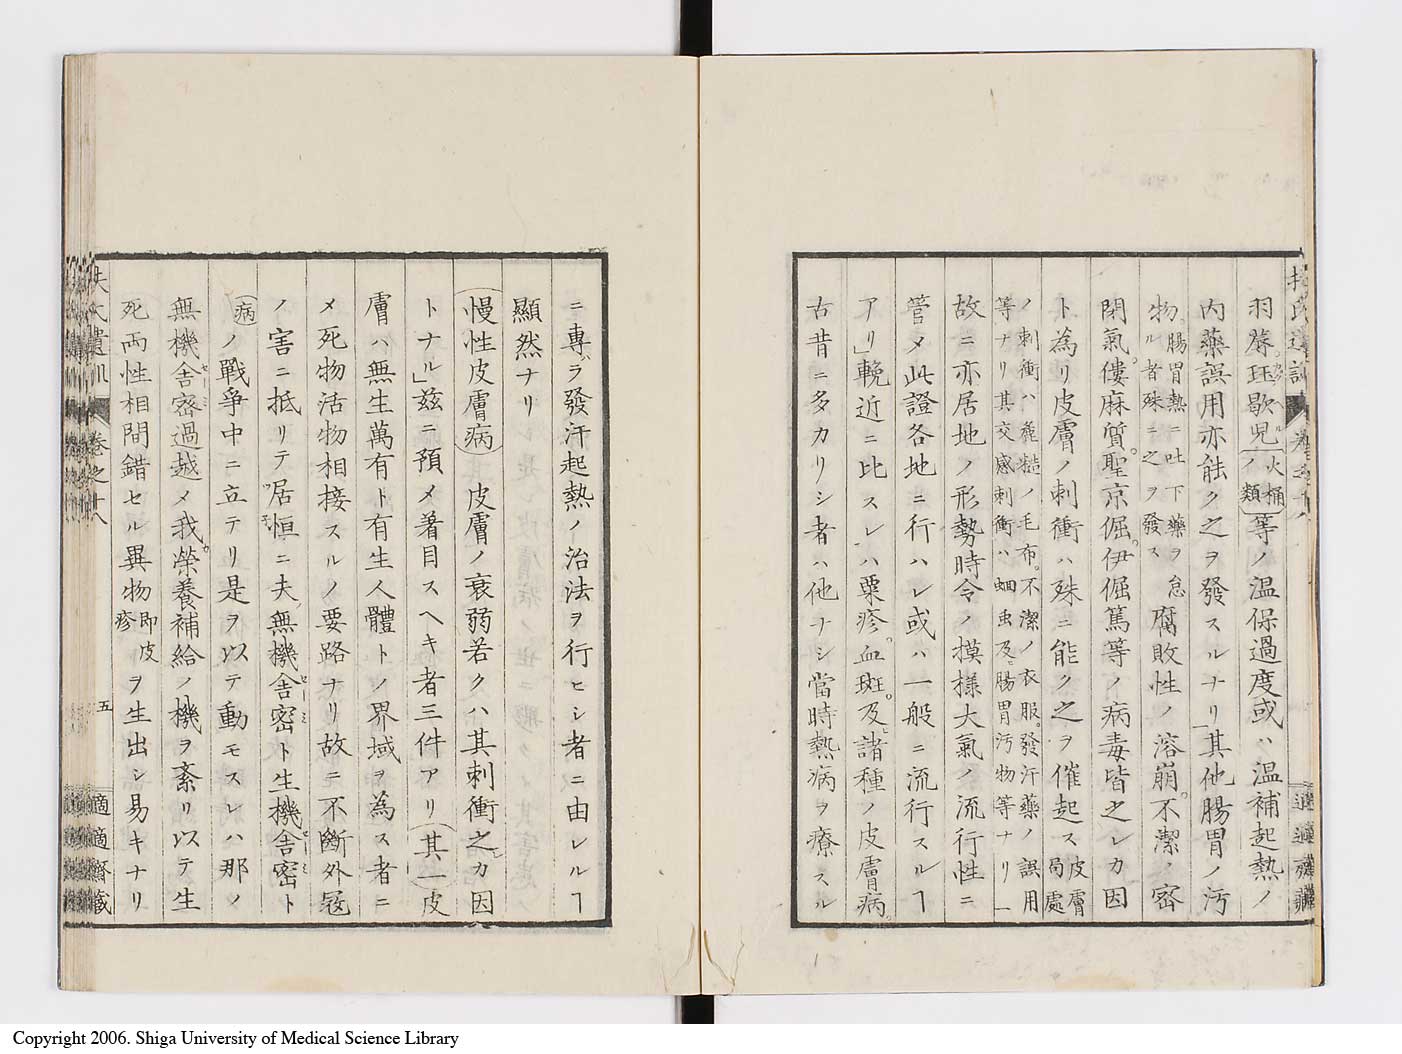 羽蓐。珏歇兒(火桶ノ類)等ノ温保過度或ハ温補起熱ノ
内藥誤用亦能ク之ヲ發スルナリ」其他腸胃ノ汚
物。腸胃熱ニ吐下藥ヲ怠ル者殊ニ之ヲ發ス腐敗性ノ溶崩。不潔ノ密
閉氣。僂麻質。聖京倔。伊倔篤等ノ病毒皆之レカ因
ト為リ皮膚ノ刺衝ハ殊ニ能ク之ヲ催起ス皮膚局處
ノ刺衝ハ麁糙ノ毛布。不潔ノ衣服。發汗藥ノ誤用
等ナリ其交感刺衝ハ蛔虫及ヒ腸胃汚物等ナリ一
故ニ亦居地ノ形勢時令ノ摸樣大氣ノ流行性ニ
管メ此證各地ニ行ハレ或ハ一般ニ流行スルヿ
アリ」輓近ニ比スレハ粟疹。血斑。及ヒ諸種ノ皮膚病。
古昔ニ多カリシ者ハ他ナシ當時熱病ヲ療スル
ニ專ラ發汗起熱ノ治法ヲ行ヒシ者ニ由レルヿ
顯然ナリ
(慢性皮膚病)皮膚ノ衰弱若クハ其刺衝之カ因
トナル」茲ニ預メ着目スヘキ者三件アリ(其一)皮
膚ハ無生萬有ト有生人體トノ界域ヲ為ス者ニ
メ死物活物相接スルノ要路ナリ故ニ不斷外冦
ノ害ニ抵リテ居恒ニ夫ノ無機舎密ト生機舎密ト
(病)ノ戰爭中ニ立テリ是ヲ以テ動モスレハ那ノ
無機舎密過越メ我。榮養補給ノ機ヲ紊リ以テ生
死両性相間錯セル異物即皮疹ヲ生出シ易キナリ
扶氏遺訓 卷之十八 五 適適齋藏
Copyright 2006. Shiga University of Medical Science Library